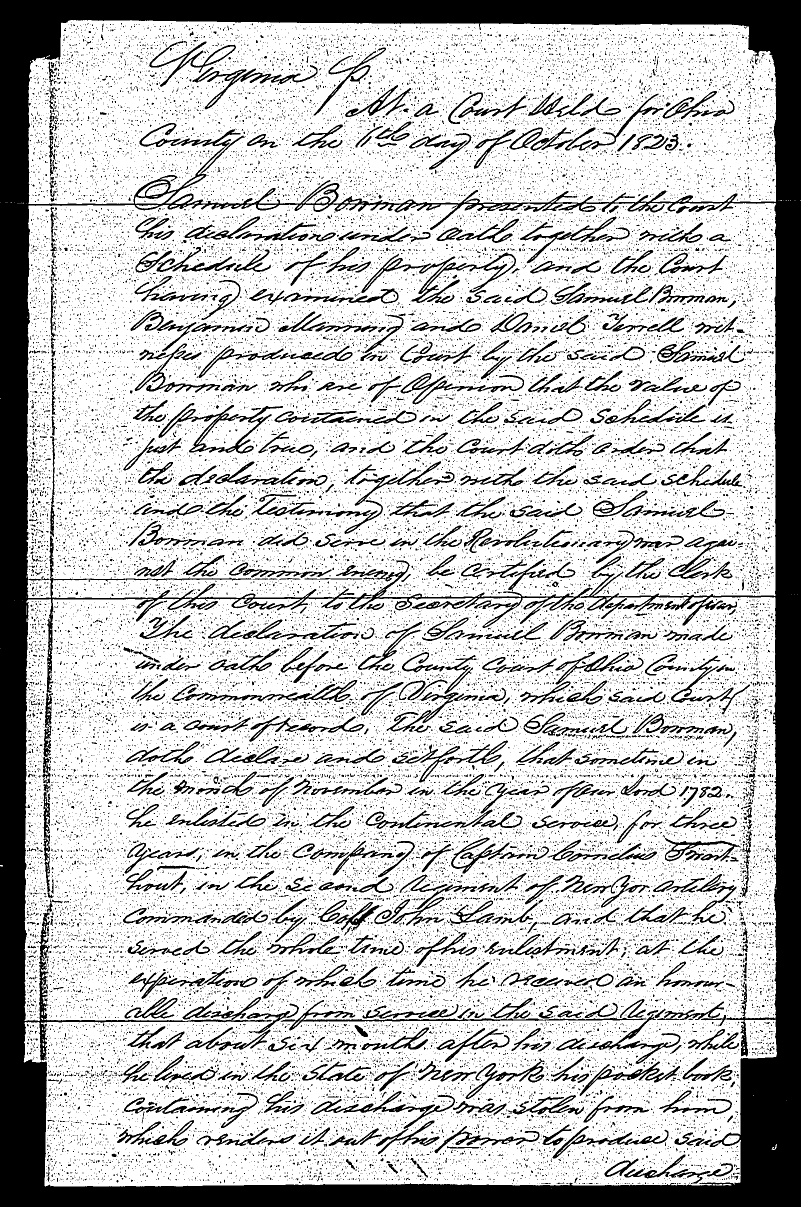 Virginia Ss.
At a Court Held for Ohio
County on the 6th day of October 1823.
Samuel Bowman presented to the Court
his declaration under oath together with a
Schedule of his property, and the Court
having examined the said Samuel Bowman,
Benjamin Manning and Daniel Terrell wit-
nesses produced in Court by the said Samuel
Bowman who are of Opinion that the value of
the property contained in the said schedule is
just and true, and the Court doth order that
the declaration, together with the said schedule
and the Testimony that the said Samuel
Bowman did serve in the Revolutionary war agai-
nst the common enemy, be certified by the Clerk
of this Court to the Secretary of the department of war,
The declaration of Samuel Bowman made
under oath before the County Court of Ohio County in
the Commonwealth of Virginia, which said Court
is a court of record. The said Samuel Bowman,
doth declare and setforth, that sometime in
the month of November in the year of our Lord 1782.
he enlisted in the Continental service, for three
years, in the company of Captain Cornelius Swart-
hout, in the second regiment of New York artilery
commanded by Coll John Lamb, and that he
served the whole time of his enlistment, at the
experation of which time he received an honour-
able discharge from service in the said Regiment,
that about six months after his discharge, while
he lived in the State of New York his pocket book,
containing his discharge was stolen from him,
which renders it out of his power to produce said
discharge